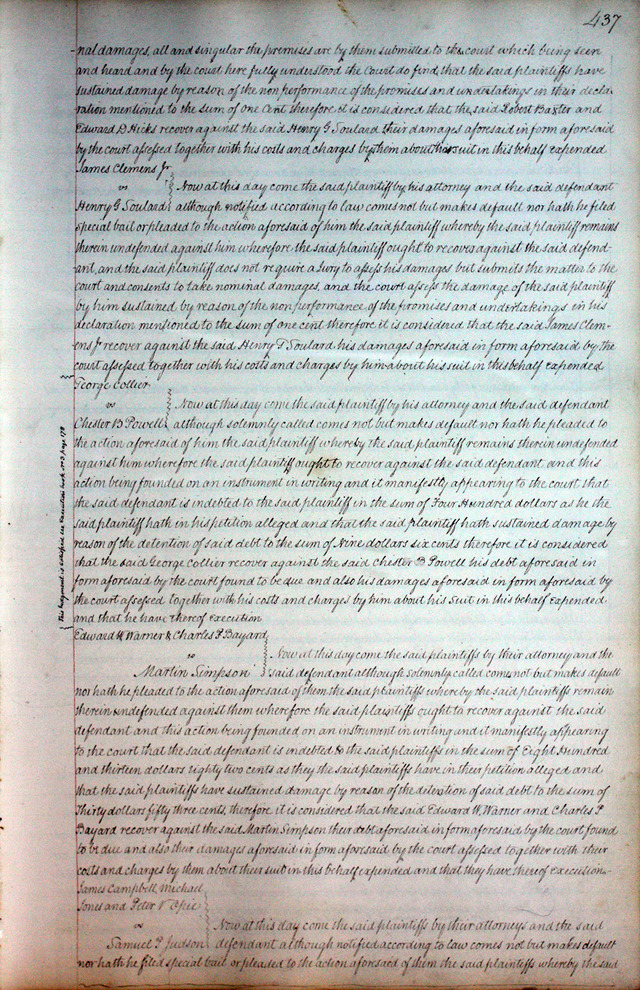 437
nal damages, all and singular the premises are by them submitted to the court which being seen
and heard and by the court here fully understood the Court do find, that the said plaintiffs have
sustained damage by reason of the non performance of the promises and undertakings in their decla
ration mentioned to the sum of one Cent therefore it is considered that the said Robert Baxter and
Edward D Hicks recover against the said Henry G Soulard their damages aforesaid in form aforesaid
by the court assessed together with his costs and charges by them about their suit in this behalf expended
James Clemens Jr
vs Now at this day come the said plaintiff by his attorney and the said defendant
Henry G Soulard although notified according to law comes not but makes default nor hath he filed
special bail or pleaded to the action aforesaid of him the said plaintiff whereby the said plaintiff remains
therein undefended against him wherefore the said plaintiff ought to recover against the said defend-
ant, and the said plaintiff does not require a Jury to assess his damages but submits the matter to the
court and consents to take nominal damages, and the court assess the damage of the said plaintiff
by him sustained by reason of the non performance of the promises and undertakings in his
declaration mentioned to the sum of one cent therefore it is considered that the said James Clem-
ens Jr recover against the said Henry G Soulard his damages aforesaid in form aforesaid by the
court assessed together with his costs and charges by him about his suit in this behalf expended
George Collier
vs Now at this day come the said plaintiff by his attorney and the said defendant
Chester B Powell although solemnly called comes not but makes default nor hath he pleaded to
the action aforesaid of him the said plaintiff whereby the said plaintiff remains therein undefended
against him wherefore the said plaintiff ought to recover against the said defendant and this
action being founded on an instrument in writing and it manifestly appearing to the court that
the said defendant is indebted to the said plaintiff in the sum of Four Hundred dollars as he the
said plaintiff hath in his petition alleged and that the said plaintiff hath sustained damage by
reason of the detention of said debt to the sum of Nine dollars six cents therefore it is considered
that the said George Collier recover against the said Chester B Powell his debt aforesaid in
form aforesaid by the court found to be due and also his damages aforesaid in form aforesaid by
the court assessed together with his costs and charges by him about his Suit in this behalf expended
and that he have thereof execution
This judgment is satisfied see Execution book No 3 page 178
Edward W Warner & Charles P Bayard
vs Now at this day come the said plaintiffs by their attorney and the
Martin Simpson said defendant although solemnly called comes not but makes default
nor hath he pleaded to the action aforesaid of them the said plaintiffs whereby the said plaintiffs remain
therein undefended against them wherefore the said plaintiff ought to recover against the said
defendant and this action being founded on an instrument in writing and it manifestly appearing
to the court that the said defendant is indebted to the said plaintiffs in the sum of Eight Hundred
and thirteen dollars eighty two cents as they the said plaintiffs have in their petition alleged and
that the said plaintiffs have sustained damage by reason of the detention of said debt to the sum of
Thirty dollars fifty three cents, therefore it is considered that the said Edward W Warner and Charles P
Bayard recover against the said Martin Simpson their debt aforesaid in form aforesaid by the court found
to be due and also their damages aforesaid in form aforesaid by the court assessed together with their
costs and charges by them about their suit in this behalf expended and that they have thereof execution
James Campbell Michael
Jones and Peter V
vs Now at this day come the said plaintiffs by their attorneys and the said
Samuel P Judson defendant although notified according to law comes not but makes default
nor hath he filed special bail or pleaded to the action aforesaid of them the said plaintiffs whereby the said